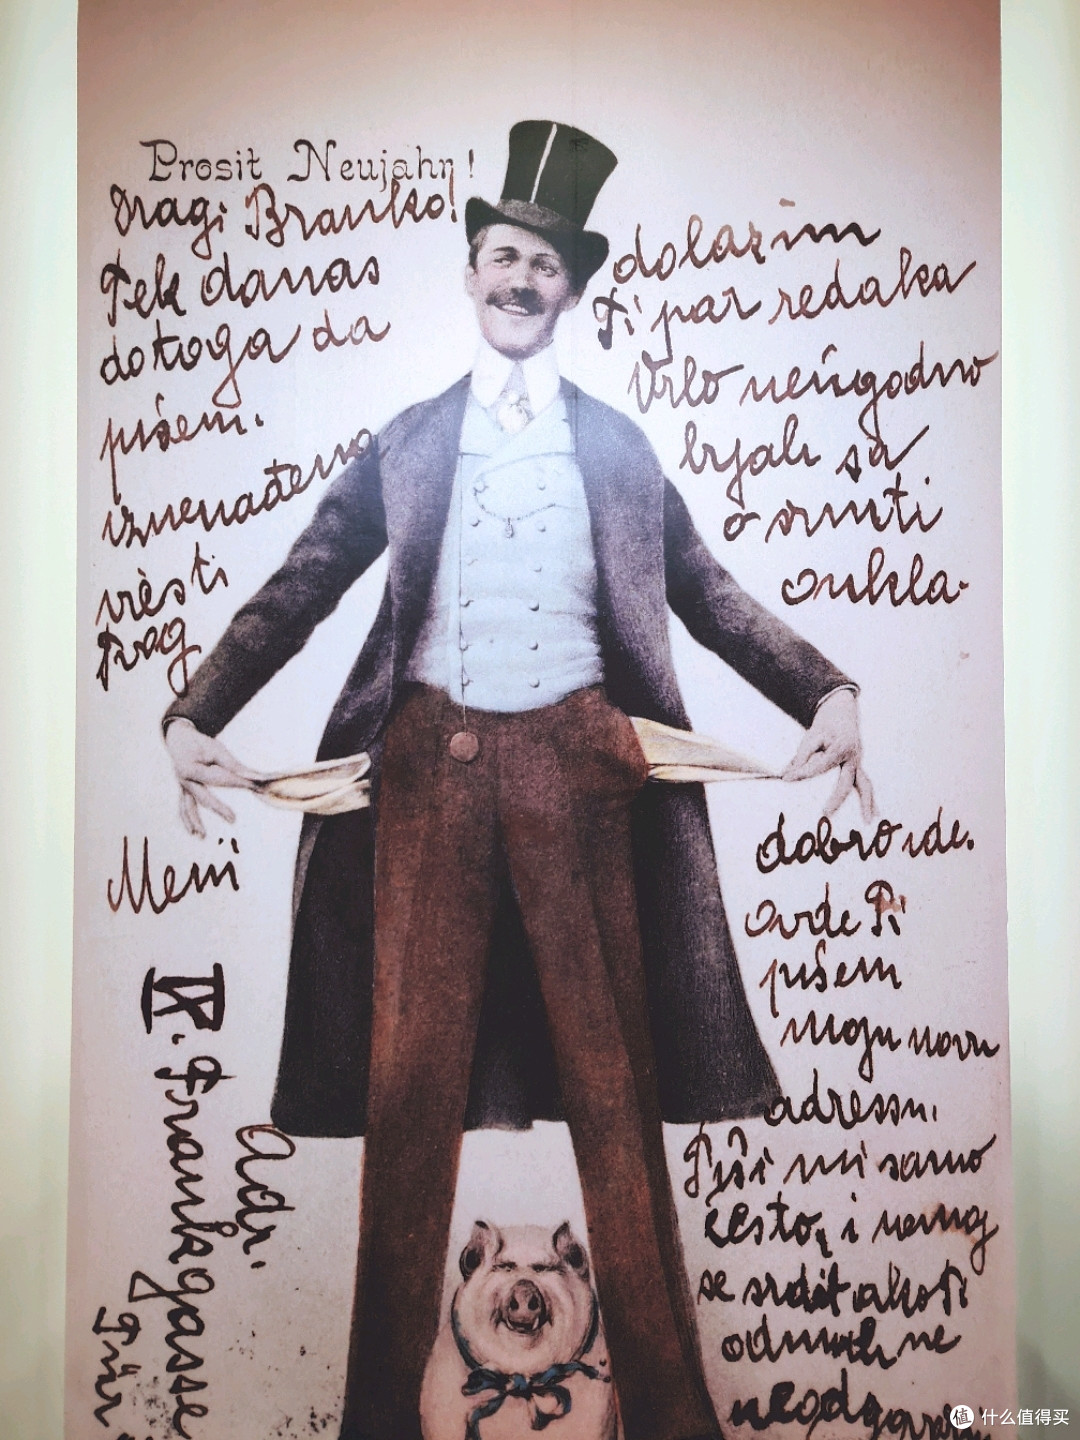 Prosit Neujahr!
Dragi Branko!
Tek danas
dotoga da
pišem.
iznenađena
viesti
Tvog
dolazim
Ti par redaka
Vrlo neugodno
bjah sa
o smrti
onkla.
Meni
dobro ide.
ovde Ti
pišem
moju novu
adressu.
Piši mi samo
često, i nemoj
se srdit ako Ti
odmah ne
Adr.
IX. Frankgasse
Tür
值 什么值得买